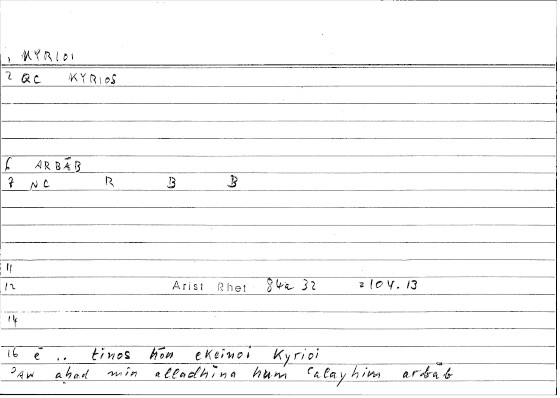 1 KYRIOI
2 QC KYRIOS
6 ARBĀB
7 NC R B B
11
12 Arist Rhet 84a 32 =104.13
14
16 ē .. tinos hōn ekeinoi kyrioi
ʾaw aḥad min alladhīna hum ʿalayhim arbāb